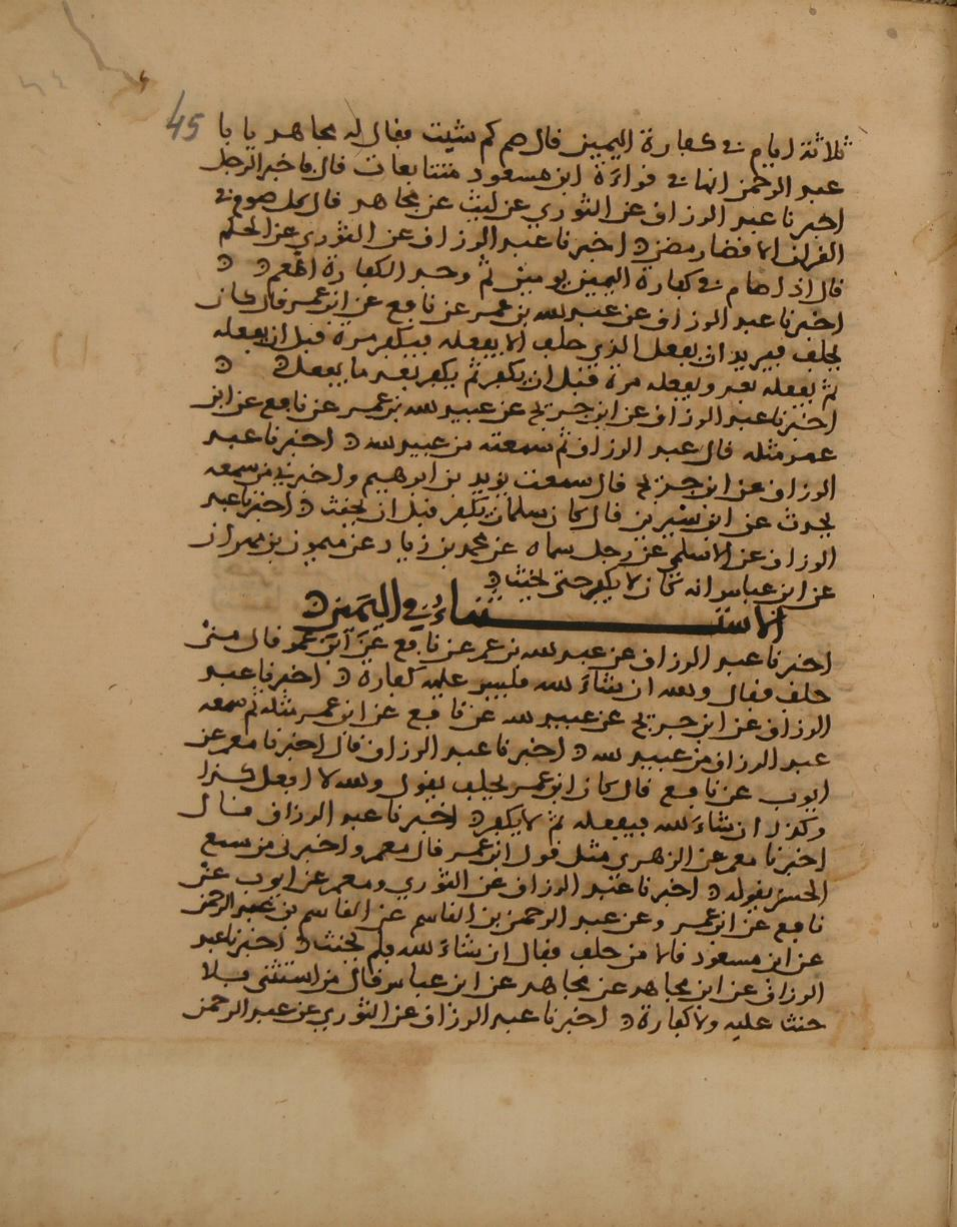 45
ثلاثة ايام في كفارة اليمين قال صم كم شيت فقال له مجاهد يا با
عبد الرحمن انها في قراءة ابن مسعود متتابعات قال فاخبر الرجل
اخبرنا عبد الرزاق عن الثوري عن ليث عن مجاهد قال كل صوم في
القران الا قضا رمضن ه اخبرنا عبد الرزاق عن الثوري عن الحكم
قال اذا صام في كفارة اليمين يومين ثم وجد الكفارة اطعم ه ه
اخبرنا عبد الرزاق عن عبد الله بن عمر عن نافع عن ابن عمر قال كان
يحلف فيريد ان يفعل الذي حلف الا يفعله فيكفر مرة قبل ان يفعله
ثم يفعله بعد ويفعله مرة قبل ان يكفر ثم يكفر بعد ما يفعل ه ه
اخبرنا عبد الرزاق عن ابن جريج عن عبيد الله بن عمر عن نافع عن ابن
عمر مثله قال عبد الرزاق ثم سمعته من عبيد الله ه اخبرنا عبد
الرزاق عن ابن جريج قال سمعت يزيد بن ابرهيم واخبرني من سمعه
يحدث عن ابن سيرين قال كان سلمان يكفر قبل ان يحنث ه اخبرنا عبد
الرزاق عن الاسلمي عن رجل سماه عن محمد بن زياد عن ميمون بن مهران
عن ابن عباس انه كان لا يكفر حتى يحنث ه
الاستثناء في اليمين ه
اخبرنا عبد الرزاق عن عبد الله بن عمر عن نافع عن ابن عمر قال من
حلف فقال والله ان شاء الله فليس عليه كفارة ه اخبرنا عبد
الرزاق عن ابن جريج عن عبيد الله عن نافع عن ابن عمر مثله ثم سمعه
عبد الرزاق من عبيد الله ه اخبرنا عبد الرزاق قال اخبرنا معمر عن
ايوب عن نافع قال كان ابن عمر يحلف يقول والله لا افعل كذا
وكذا ان شاء الله فيفعله ثم لا يكفر ه اخبرنا عبد الرزاق قال
اخبرنا معمر عن الزهري مثل قول ابن عمر قال معمر واخبرني من سمع
الحسن يقوله ه اخبرنا عبد الرزاق عن الثوري ومعمر عن ايوب عن
نافع عن ابن عمر وعن عبد الرحمن بن القاسم عن القاسم بن عبد الرحمن
عن ابن مسعود قالا من حلف فقال ان شاء الله فلم يحنث ه اخبرنا عبد
الرزاق عن ابن مجاهد عن مجاهد عن ابن عباس قال من استثنى فلا
حنث عليه ولا كفارة ه اخبرنا عبد الرزاق عن الثوري عن عبد الرحمن